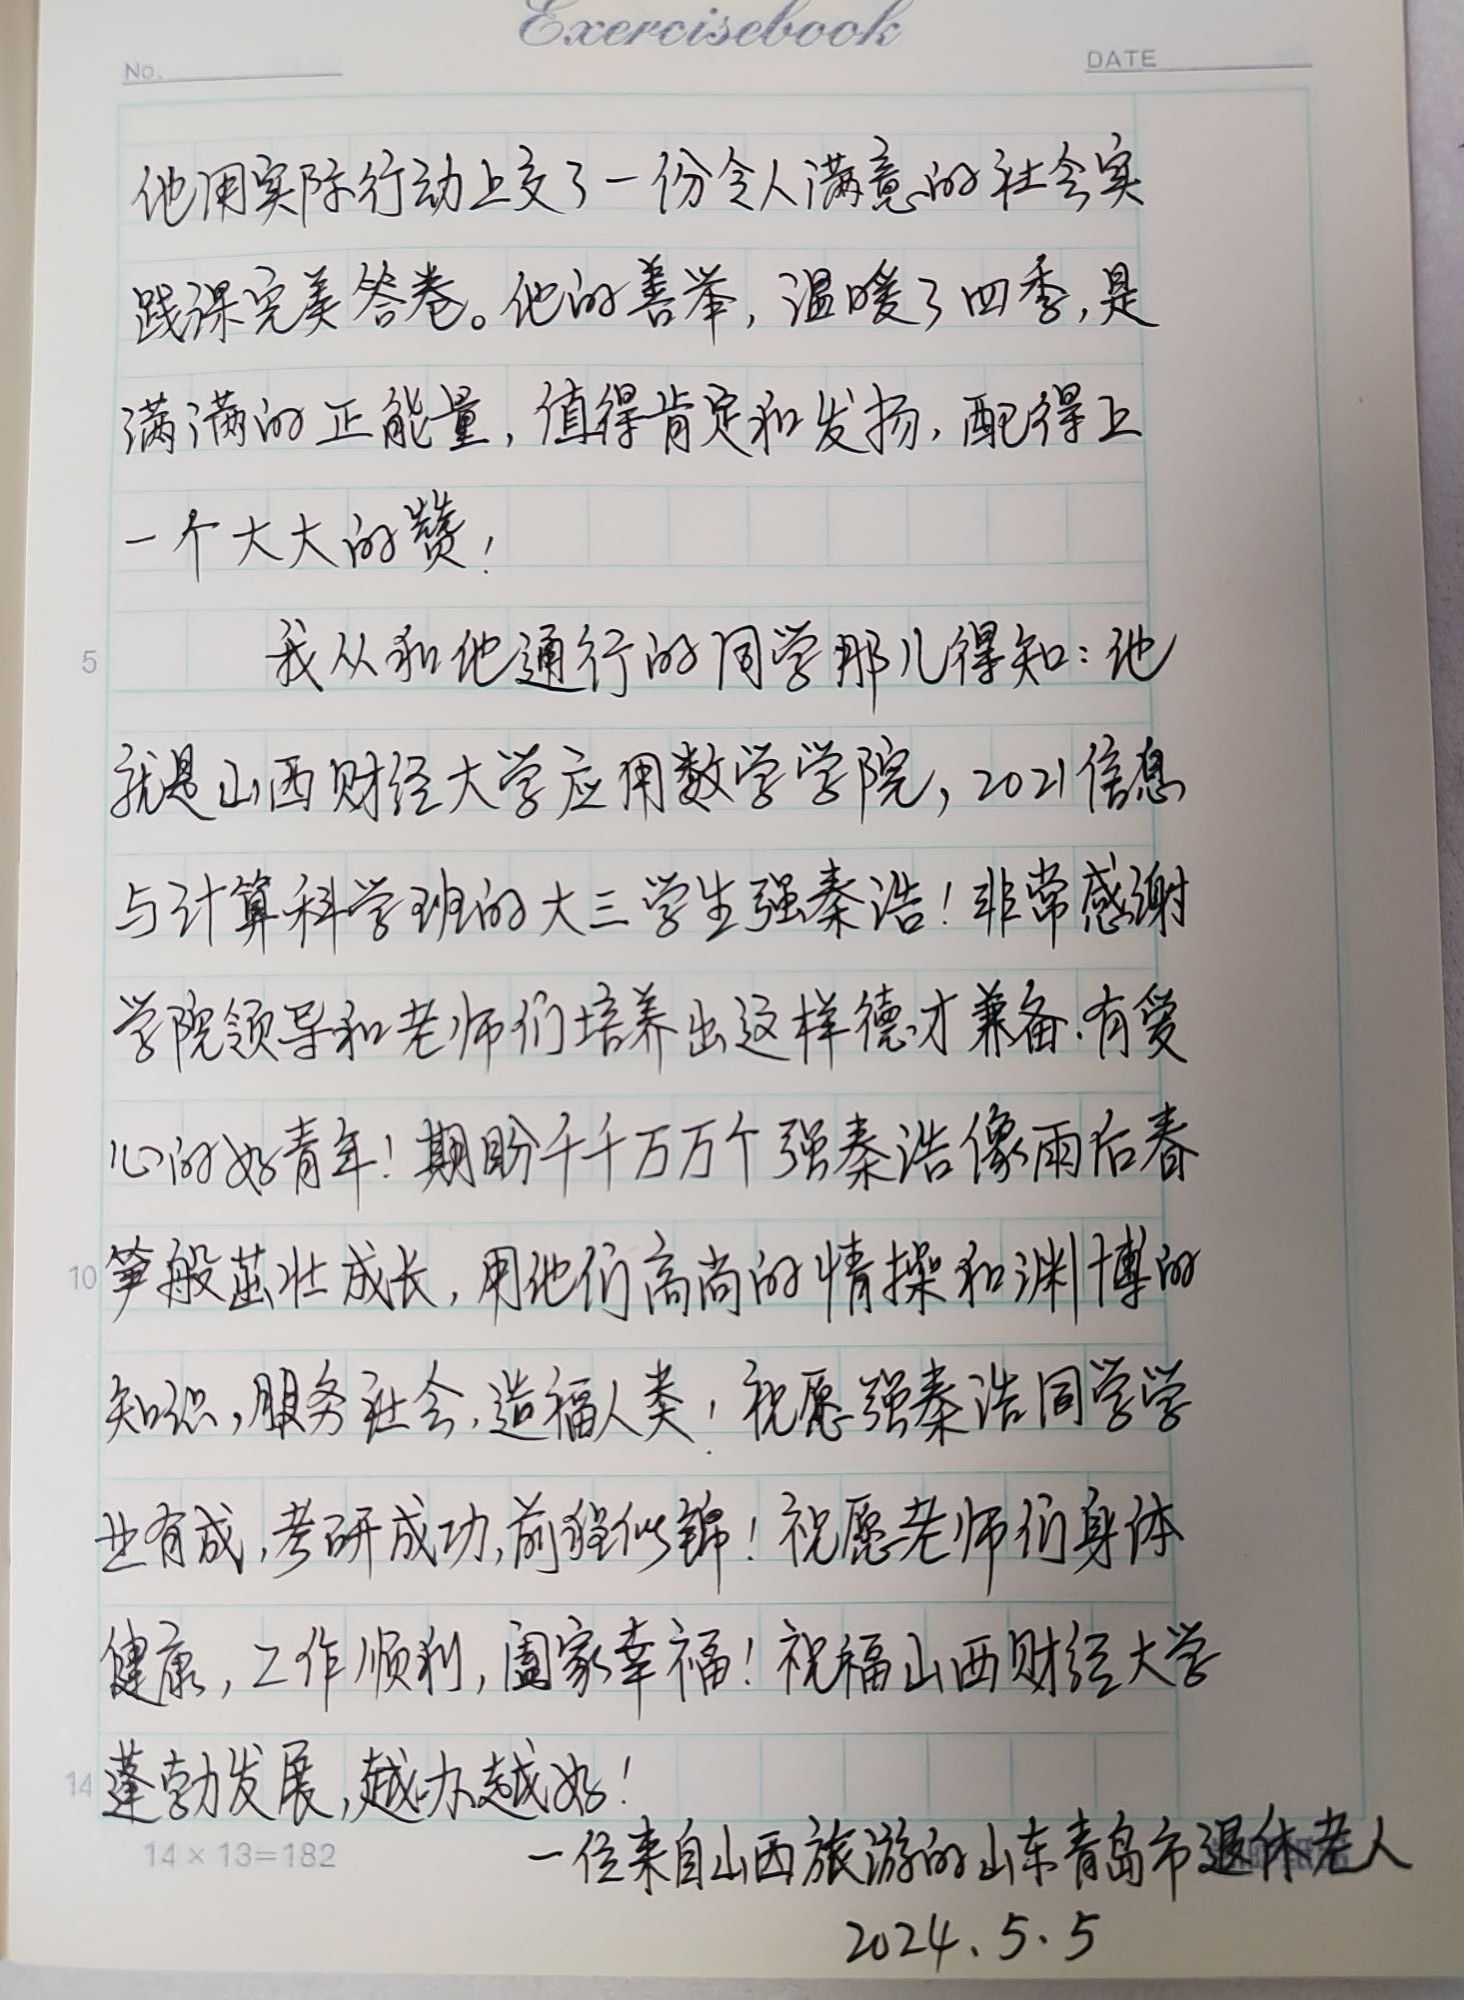 Exercisebook
No.
DATE
他用实际行动上交了一份令人满意的社会实
践课完美答卷。他的善举，温暖了四季，是
满满的正能量，值得肯定和发扬，配得上
一个大大的赞！
5
我从和他通行的同学那儿得知：他
就是山西财经大学应用数学学院，2021信息
与计算科学班的大三学生强秦浩！非常感谢
学院领导和老师们培养出这样德才兼备、有爱
心的好青年！期盼千千万万个强秦浩像雨后春
10
笋般茁壮成长，用他们高尚的情操和渊博的
知识，服务社会，造福人类！祝愿强秦浩同学学
业有成，考研成功，前程似锦！祝愿老师们身体
健康，工作顺利，阖家幸福！祝福山西财经大学
14
蓬勃发展，越办越好！
14×13=182
一位来自山西旅游的山东青岛市退休老人
2024.5.5